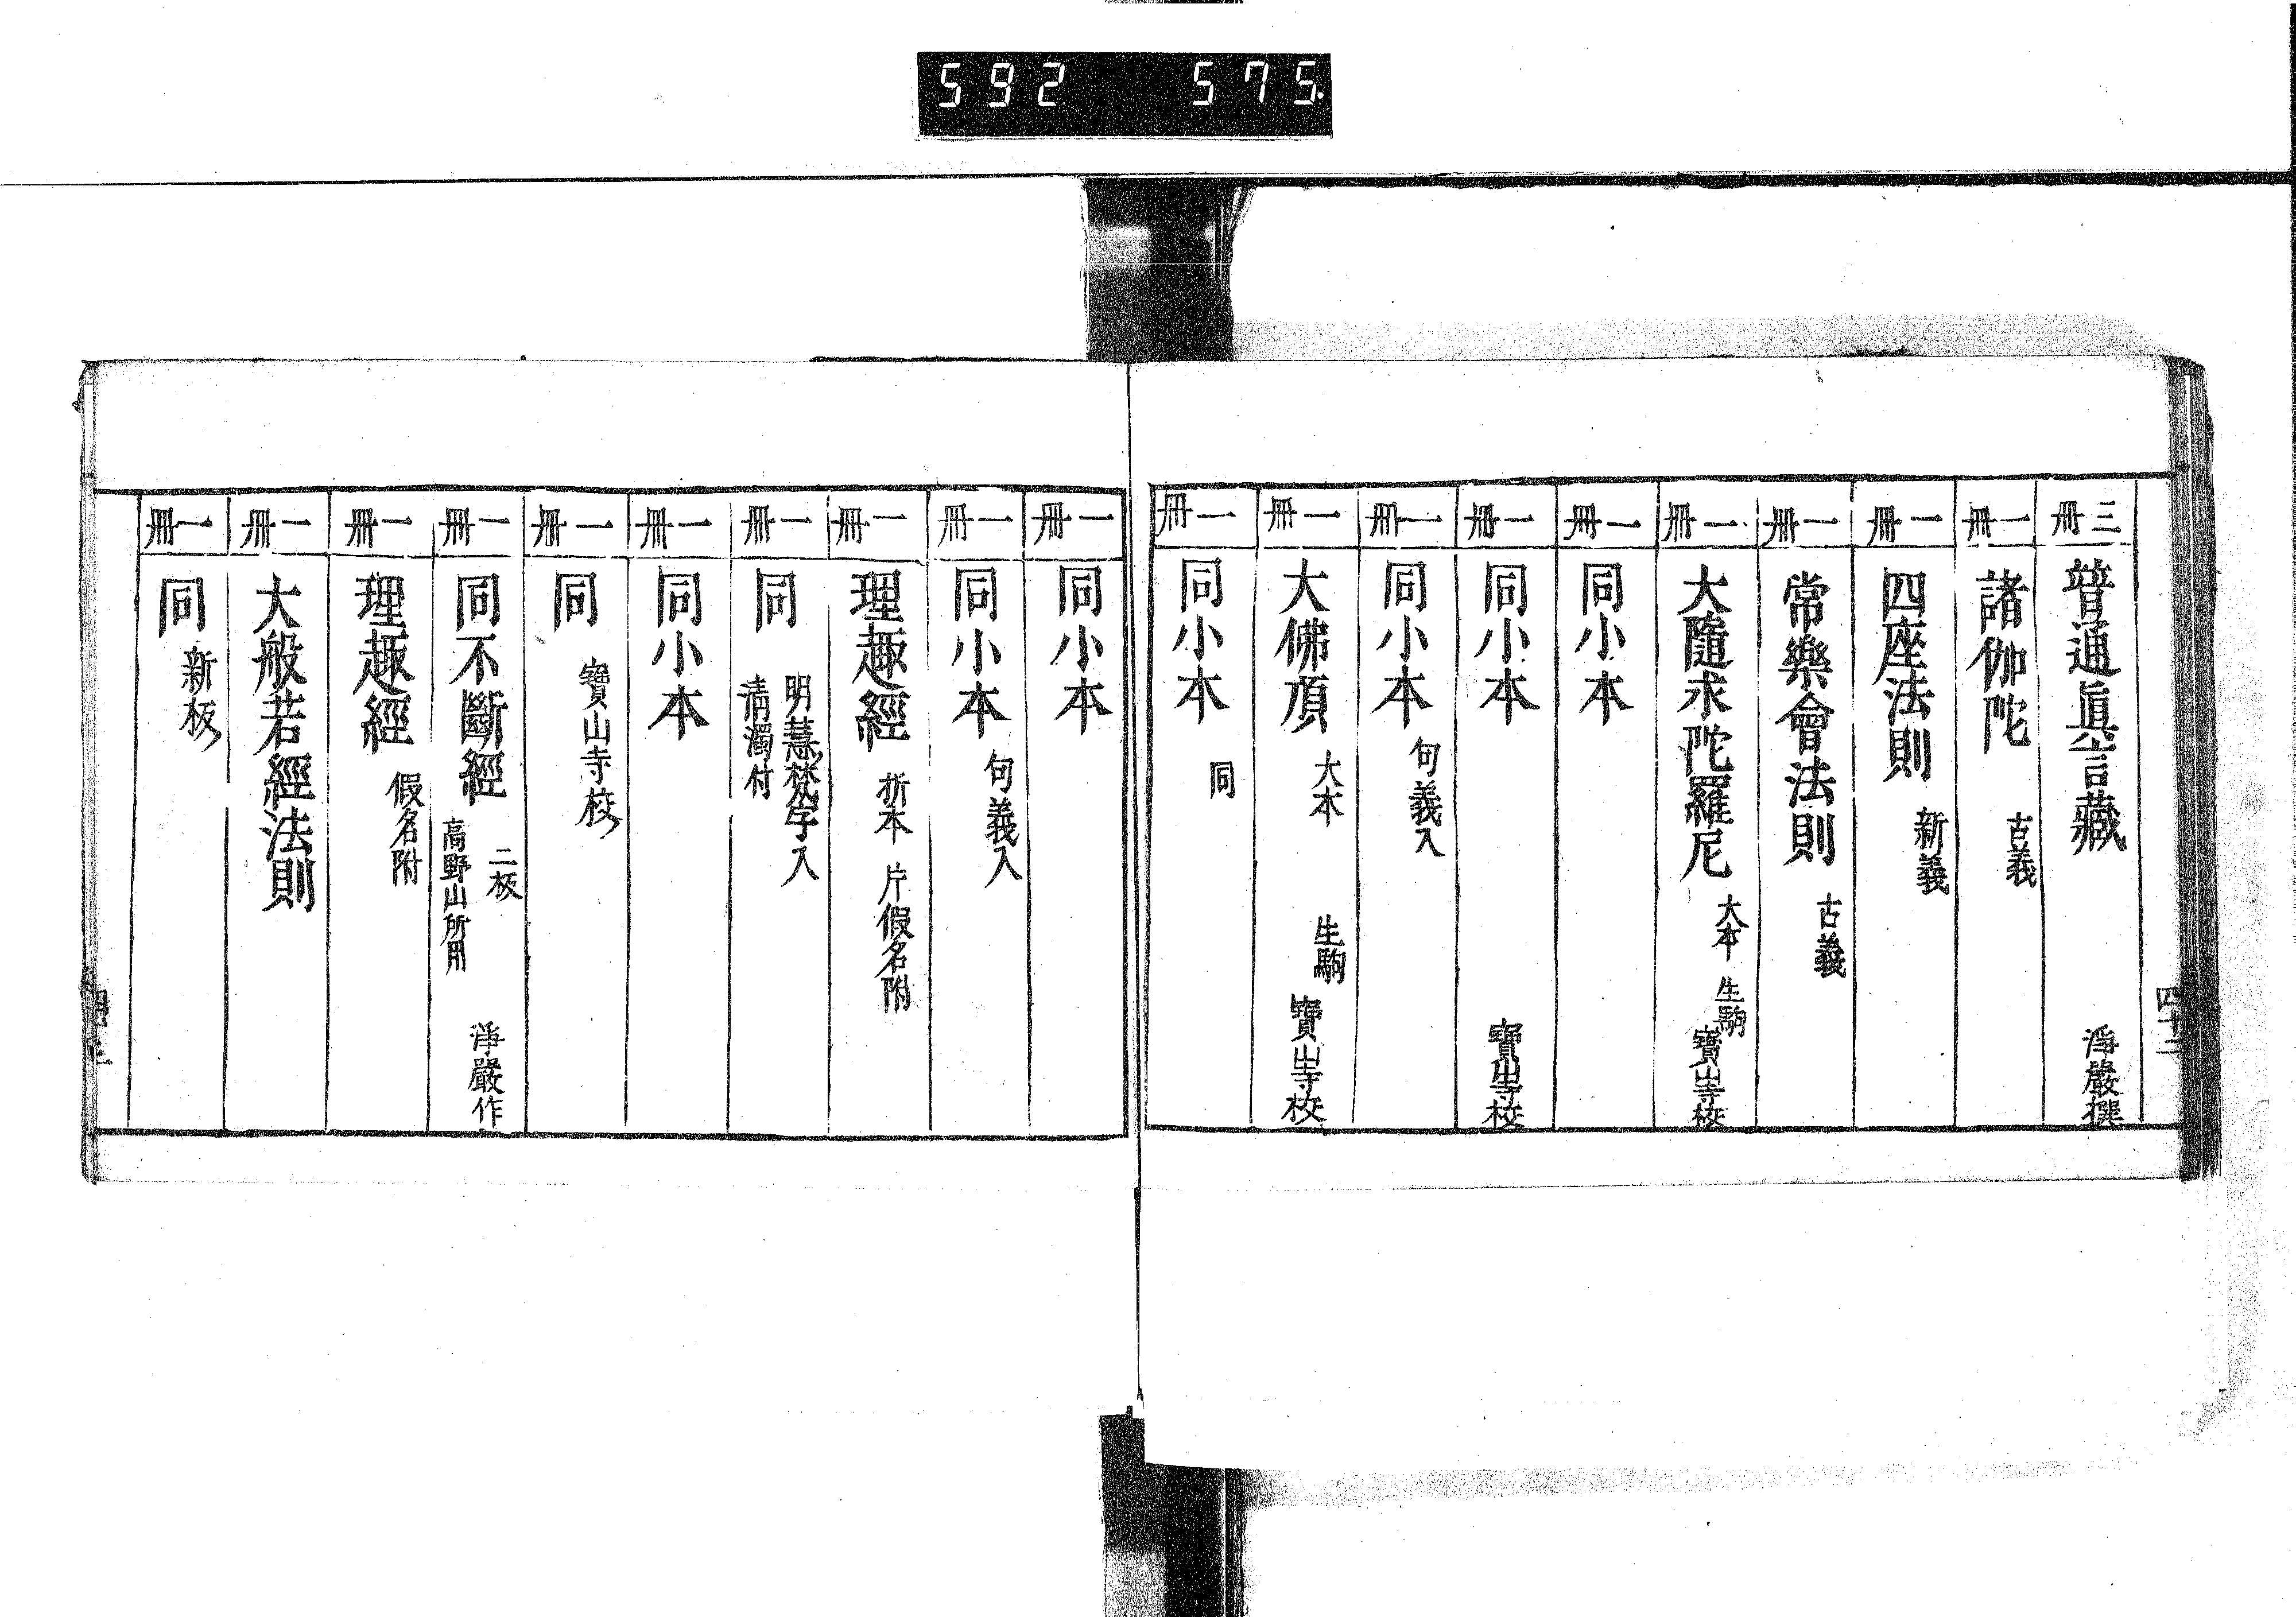 592 575.
四十二
三冊 普通眞言藏 淨嚴撰
一冊 諸伽陀 古義
一冊 四座法則 新義
一冊 常樂會法則 古義
一冊 大隨求陀羅尼 大本 生駒 寶山寺校
一冊 同小本
一冊 同小本 寶山寺校
一冊 同小本 句義入
一冊 大佛頂 大本 生駒 寶山寺校
一冊 同小本 同
一冊 同小本
一冊 同小本 句義入
一冊 理趣經 折本 片假名附
一冊 同 明慧梵字入 清濁付
一冊 同小本
一冊 同 寶山寺校
一冊 同不斷經 二板 高野山所用 淨嚴作
一冊 理趣經 假名附
一冊 大般若經法則
一冊 同 新板